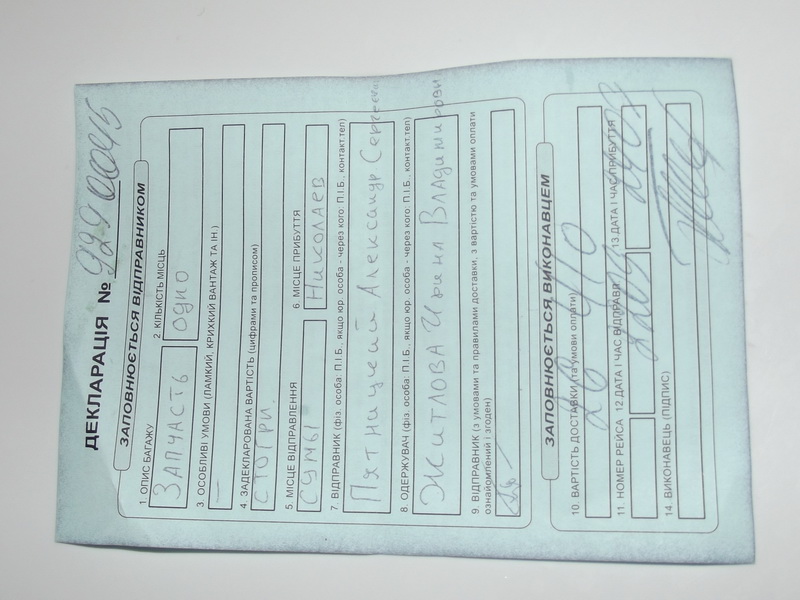 ДЕКЛАРАЦІЯ № 929 0045
ЗАПОВНЮЄТЬСЯ ВІДПРАВНИКОМ
1 ОПИС БАГАЖУ
2 КІЛЬКІСТЬ МІСЦЬ
ЗАПЧАСТЬ
ОДНО
3 ОСОБЛИВІ УМОВИ (ЛАМКИЙ, КРИХКИЙ ВАНТАЖ ТА ІН.)
—
4. ЗАДЕКЛАРОВАНА ВАРТІСТЬ (цифрами та прописом)
СТО ГРН.
5 МІСЦЕ ВІДПРАВЛЕННЯ
6. МІСЦЕ ПРИБУТТЯ
СУМЫ
НИКОЛАЕВ
7. ВІДПРАВНИК (фіз. особа: П.І.Б., якщо юр. особа - через кого: П.І.Б., контакт.тел)
Пятницкий Александр Сергеевич
8. ОДЕРЖУВАЧ (фіз. особа: П.І.Б., якщо юр. особа - через кого: П.І.Б., контакт.тел)
Житлова Ирина Владимировн
9. ВІДПРАВНИК (з умовами та правилами доставки, з вартістю та умовами оплати
ознайомлений і згоден)
ЗАПОВНЮЄТЬСЯ ВИКОНАВЦЕМ
10. ВАРТІСТЬ ДОСТАВКИ (та умови оплати)
11. НОМЕР РЕЙСА
12 ДАТА І ЧАС ВІДПРАВЛ
13 ДАТА І ЧАС ПРИБУТТЯ
14. ВИКОНАВЕЦЬ (ПІДПИС)